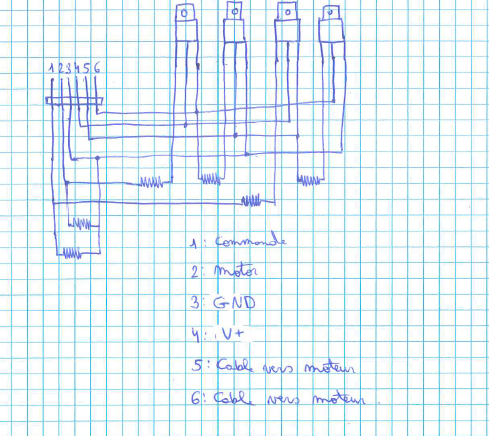 1 2 3 4 5 6
1: Commande
2: Motor
3: GND
4: V+
5: Cable vers moteur
6: Cable vers moteur.